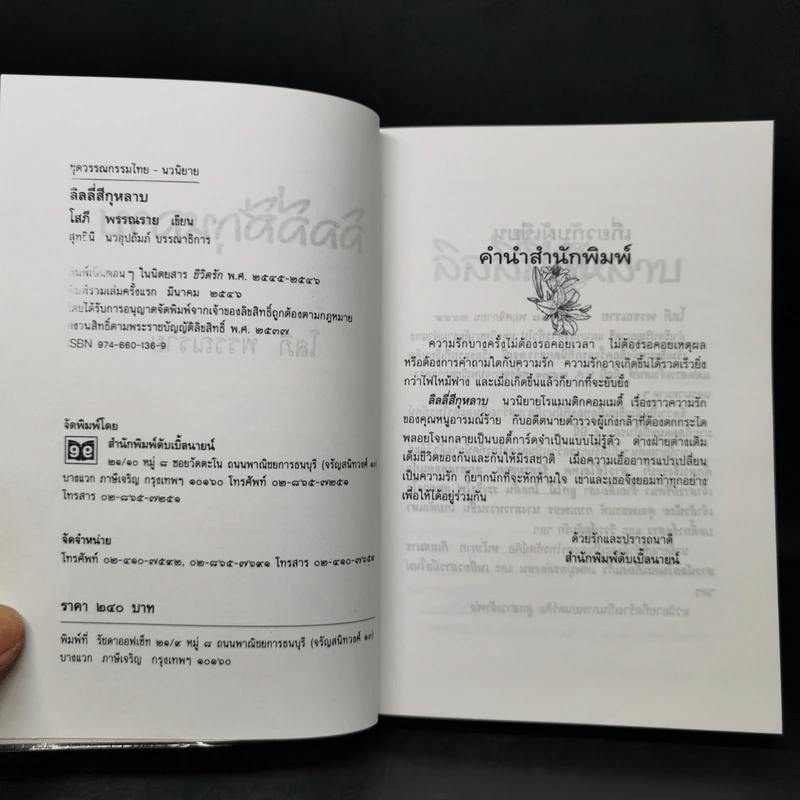 ชุดวรรณกรรมไทย - นวนิยาย
ลิลลี่สีกุหลาบ
โสภี พรรณราย เขียน
สุทธินี นวอุปถัมภ์ บรรณาธิการ
พิมพ์เป็นตอนๆ ในนิตยสาร ชีวิตรัก พ.ศ. ๒๕๔๕-๒๕๔๖
พิมพ์รวมเล่มครั้งแรก มีนาคม ๒๕๔๖
โดยได้รับการอนุญาตจัดพิมพ์จากเจ้าของลิขสิทธิ์ถูกต้องตามกฎหมาย
สงวนสิทธิ์ตามพระราชบัญญัติลิขสิทธิ์ พ.ศ. ๒๕๓๗
ISBN 974-660-136-9
จัดพิมพ์โดย
สำนักพิมพ์ดับเบิ้ลนายน์
๒๑/๑๐ หมู่ ๘ ซอยวัดตะโน ถนนพาณิชยการธนบุรี (จรัญสนิทวงศ์ ๑๓)
บางแวก ภาษีเจริญ กรุงเทพฯ ๑๐๑๖๐ โทรศัพท์ ๐๒-๘๖๕-๗๒๕๑
โทรสาร ๐๒-๘๖๕-๗๒๕๑
จัดจำหน่าย
โทรศัพท์ ๐๒-๔๑๐-๗๕๙๒, ๐๒-๘๖๕-๗๖๙๑ โทรสาร ๐๒-๔๑๐-๗๖๕๙
ราคา ๒๔๐ บาท
พิมพ์ที่ รัชดาออฟเซ็ท ๒๑/๙ หมู่ ๘ ถนนพาณิชยการธนบุรี (จรัญสนิทวงศ์ ๑๓)
บางแวก ภาษีเจริญ กรุงเทพฯ ๑๐๑๖๐
คำนำสำนักพิมพ์
ความรักบางครั้งไม่ต้องรอคอยเวลา ไม่ต้องรอคอยเหตุผล
หรือต้องการคำถามใดกับความรัก ความรักอาจเกิดขึ้นได้รวดเร็วยิ่ง
กว่าไฟไหม้ฟาง และเมื่อเกิดขึ้นแล้วก็ยากที่จะยับยั้ง
ลิลลี่สีกุหลาบ นวนิยายโรแมนติกคอมเมดี้ เรื่องราวความรัก
ของคุณหนูอารมณ์ร้าย กับอดีตนายตำรวจผู้เก่งกล้าที่ต้องตกกระได
พลอยโจนกลายเป็นบอดี้การ์ดจำเป็นแบบไม่รู้ตัว ต่างฝ่ายต่างเติม
เต็มชีวิตของกันและกันให้มีรสชาติ เมื่อความเอื้ออาทรแปรเปลี่ยน
เป็นความรัก ก็ยากนักที่จะหักห้ามใจ เขาและเธอจึงยอมทำทุกอย่าง
เพื่อให้ได้อยู่ร่วมกัน
ด้วยรักและปรารถนาดี
สำนักพิมพ์ดับเบิ้ลนายน์